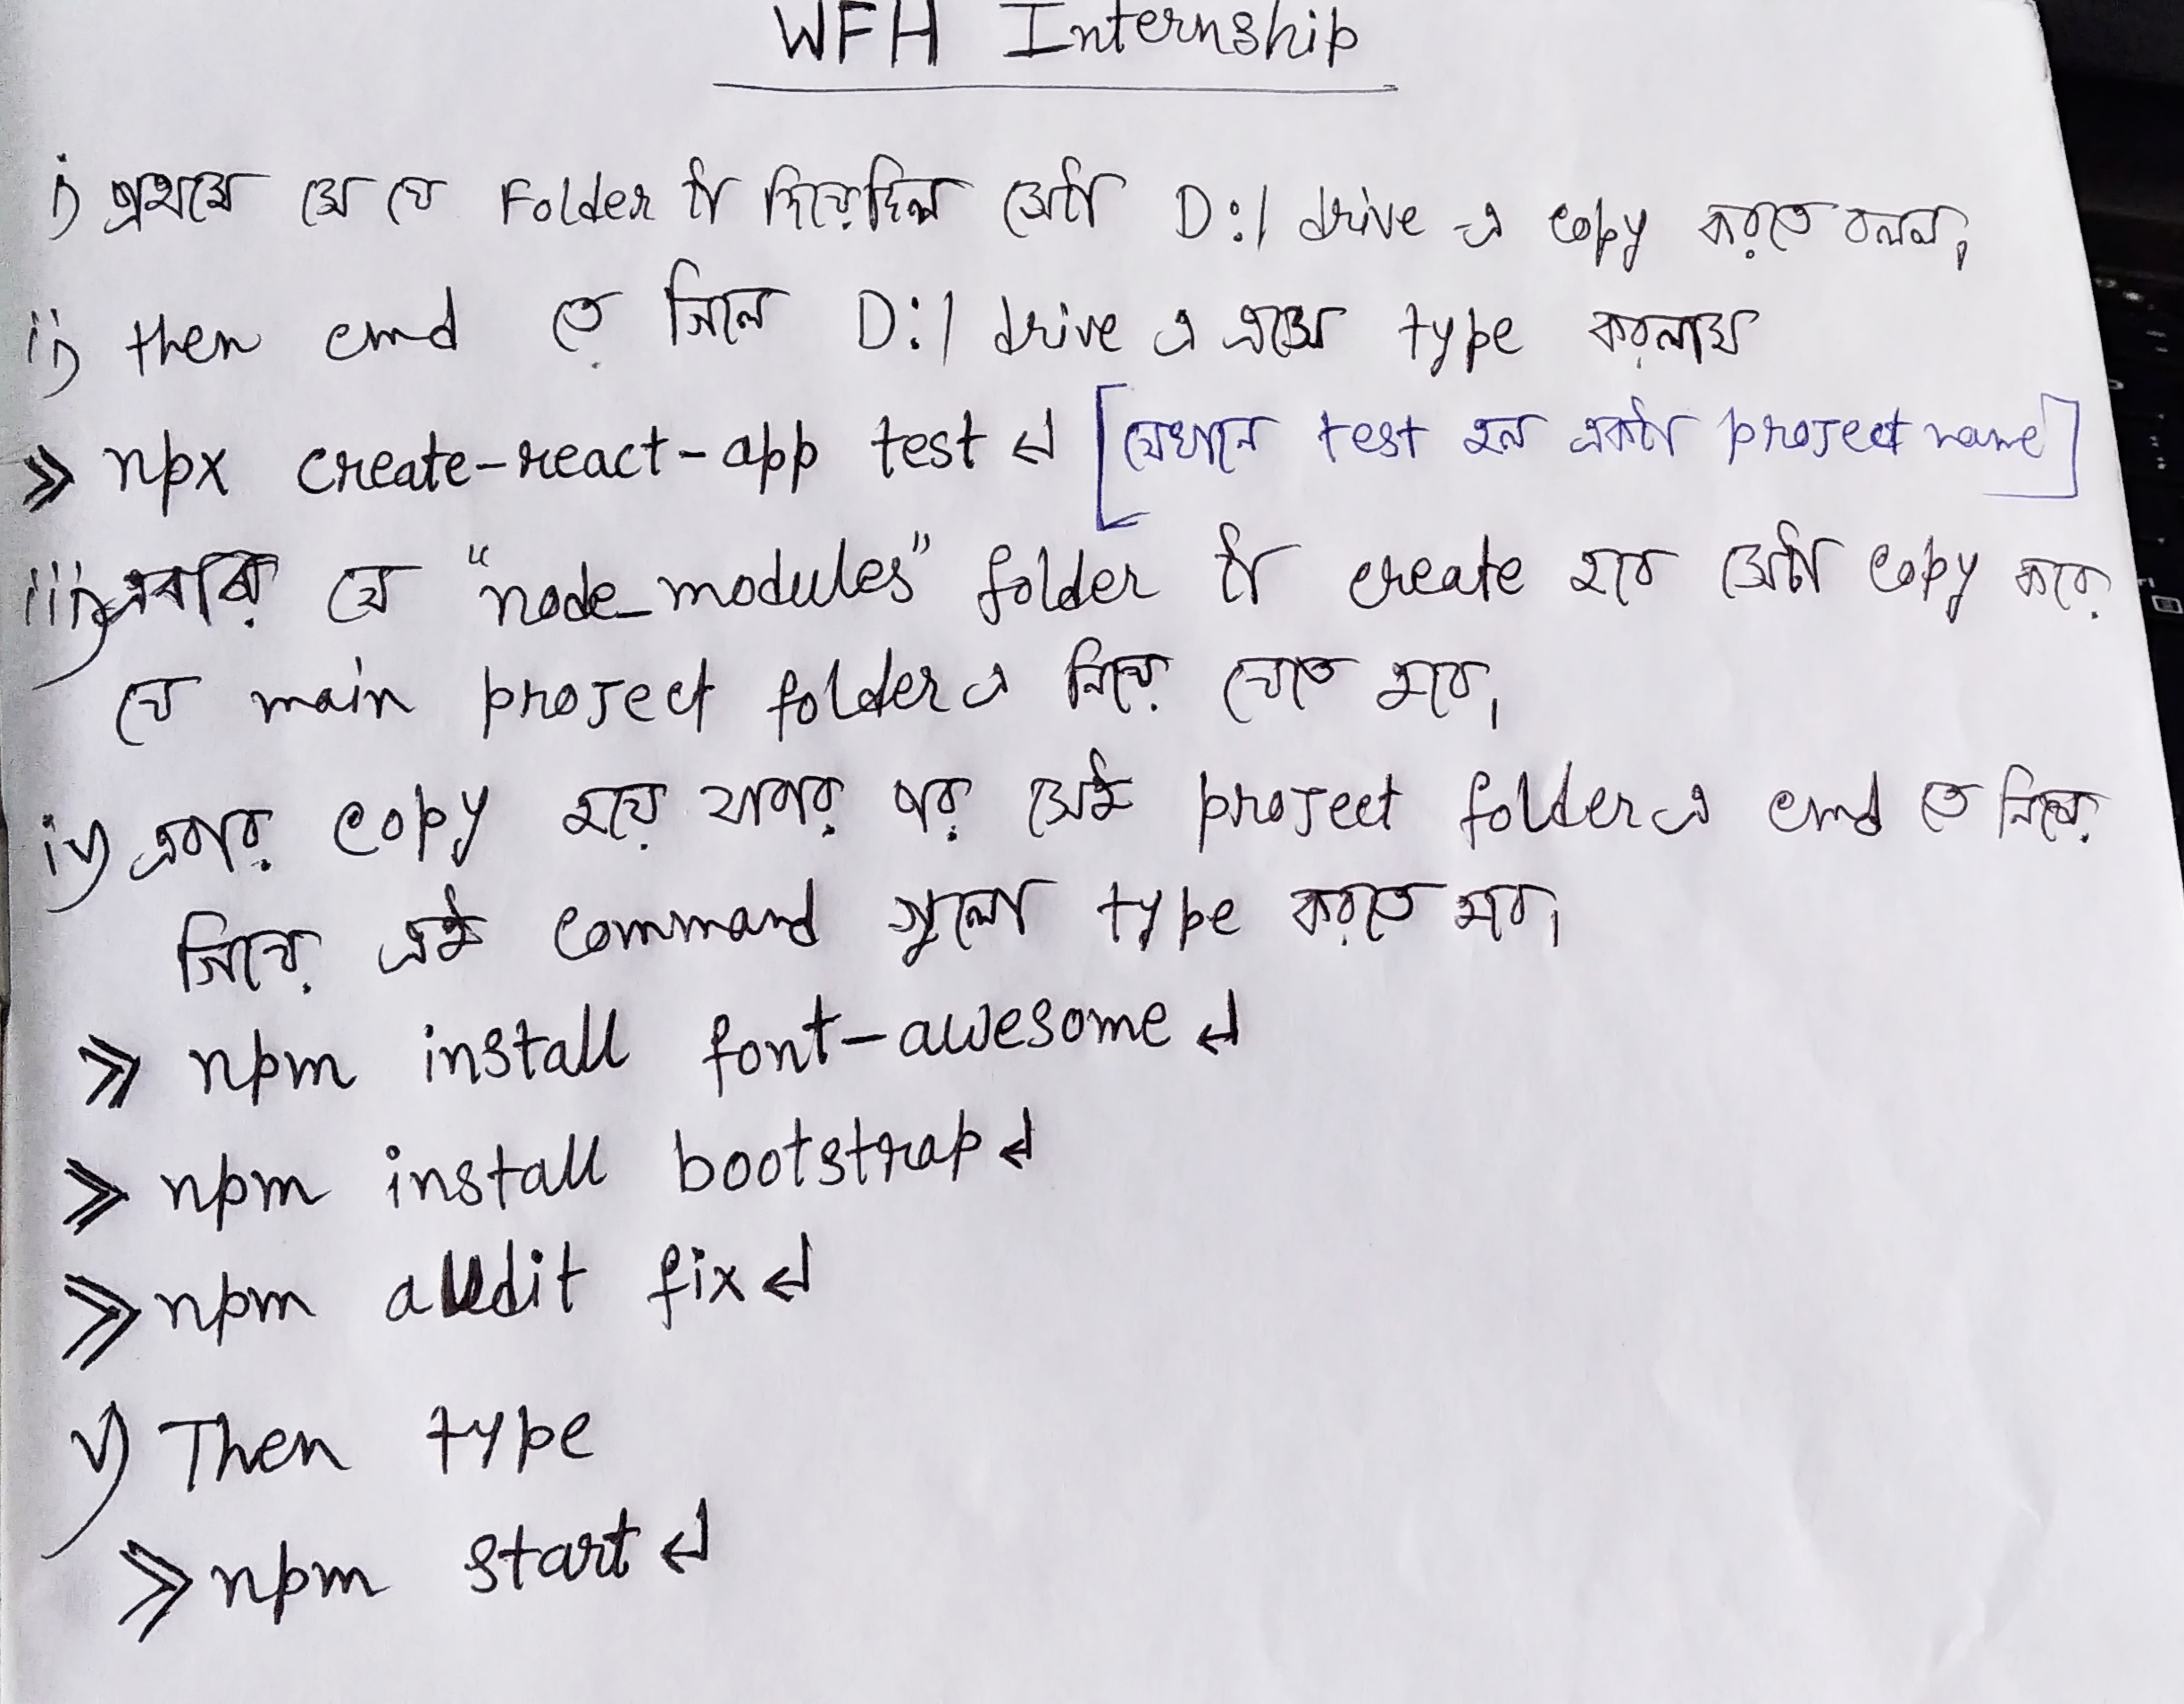 WFH Internship
i) প্রথমে যে যে Folder টা দিয়েছিল সেটা D:/ drive এ copy করতে বলল।
ii) then cmd তে গিলে D:/ drive এ এসে type করলাম
>> npx create-react-app test ↵ [যেখানে test হল একটা project name]
iii) এবার যে "node_modules" folder টা create হবে সেটা copy করে
যে main project folder এ নিয়ে যেতে হবে।
iv) এবার copy হয়ে যাবার পর সেই project folder এ cmd তে নিয়ে
গিয়ে এই command গুলো type করতে হবে।
>> npm install font-awesome ↵
>> npm install bootstrap ↵
>> npm audit fix ↵
v) Then type
>> npm start ↵